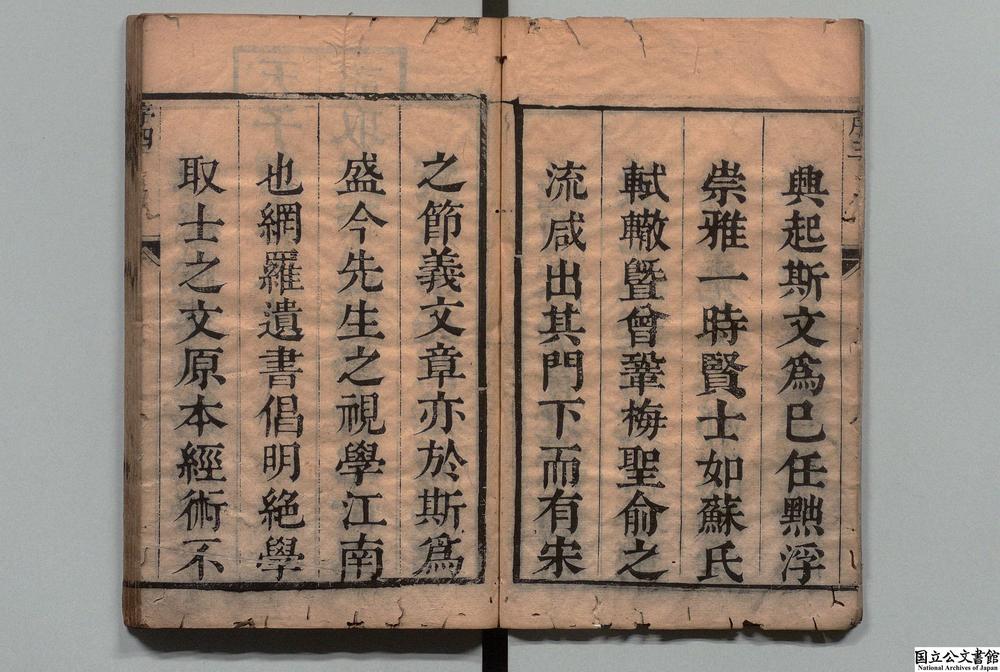 興起斯文爲巳任黜浮
崇雅一時賢士如蘇氏
軾轍曁曾鞏梅聖俞之
流咸出其門下而有宋
之節義文章亦於斯爲
盛今先生之視學江南
也網羅遺書倡明絶學
取士之文原本經術不
序四
国立公文書館
National Archives of Japan